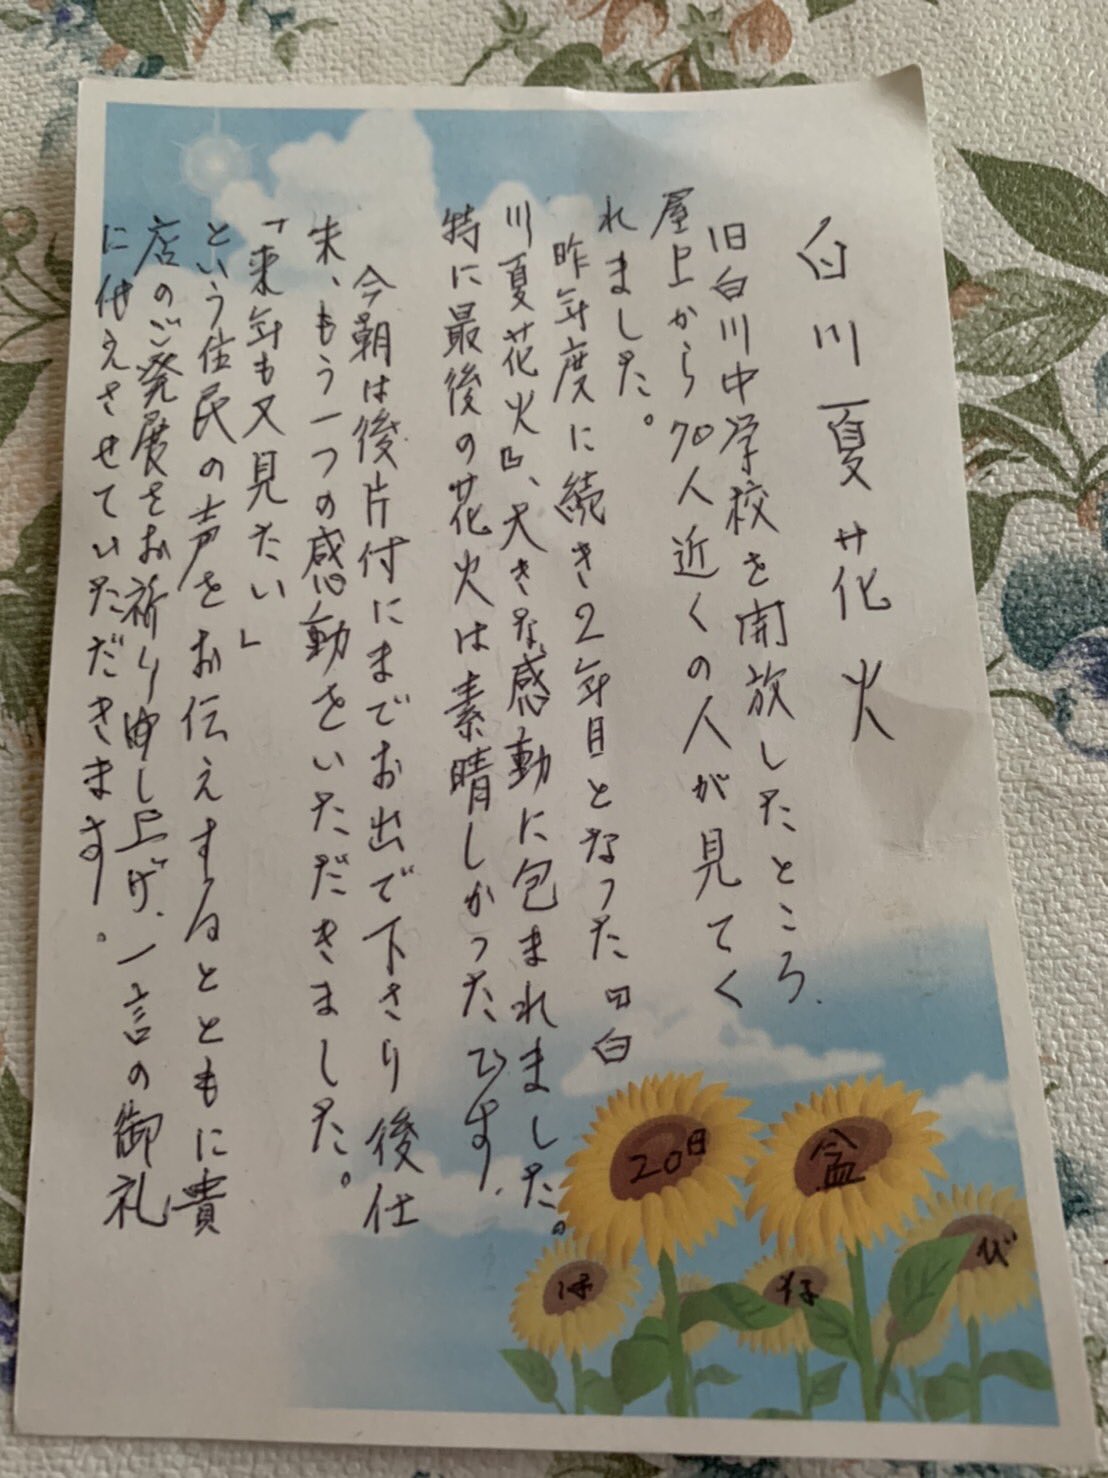 白川夏花火
旧白川中学校を開放したところ、
屋上から70人近くの人が見てく
れました。
昨年度に続き2年目となった『白
川夏花火』、大きな感動に包まれました。
特に最後の花火は素晴しかったです。
今朝は後片付にまでお出で下さり後仕
末、もう一つの感動をいただきました。
「来年も又見たい」
という住民の声をお伝えするとともに貴
店のご発展をお祈り申し上げ、一言の御礼
に代えさせていただきます。
20日
盆
は
な
び